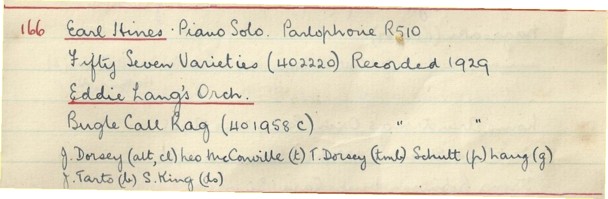 166 Earl Hines. Piano Solo. Parlophone R510
Fifty Seven Varieties (402220) Recorded 1929
Eddie Lang's Orch.
Bugle Call Rag (401958 C) " "
J. Dorsey (alt, cl) Leo McConville (t) T. Dorsey (tmb) Schutt (p) Lang (g)
J. Tarto (b) S. King (ds)